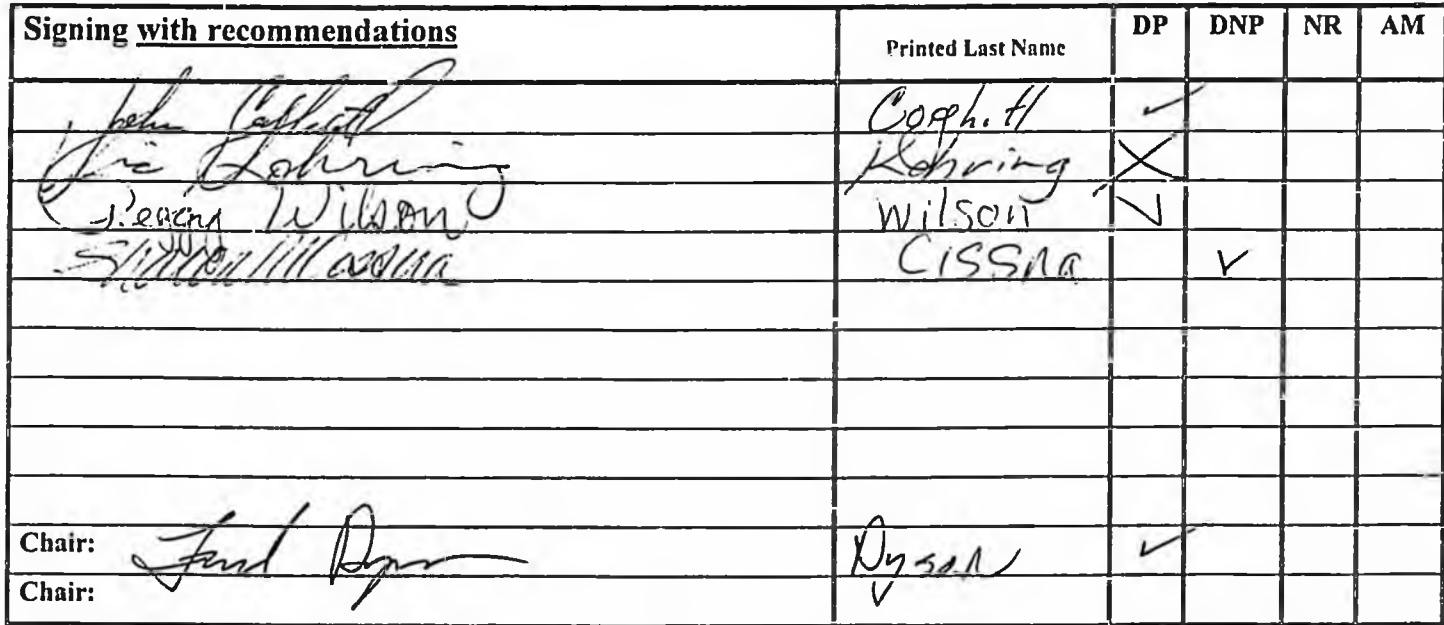 Signing with recommendations Printed Last Name DP DNP NR AM
John Coghill Coghill ✓
Vic Kohring Kohring X
Peggy Wilson Wilson ✓
Cissna Cissna ✓
Chair: Fred Dyson Dyson ✓
Chair: